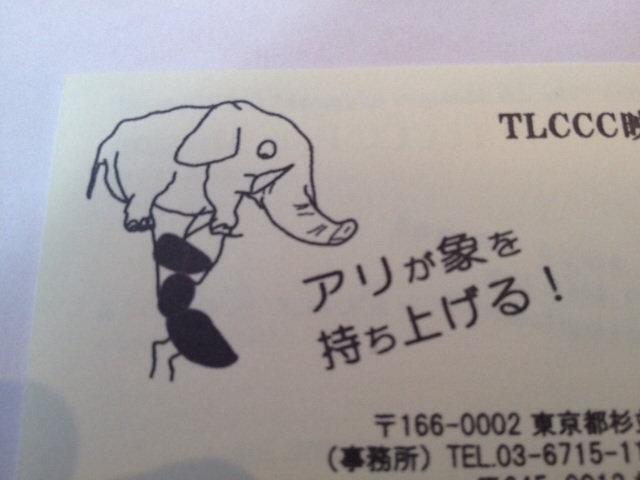 TLCCC映
アリが象を
持ち上げる！
〒166-0002 東京都杉並
（事務所）TEL.03-6715-11